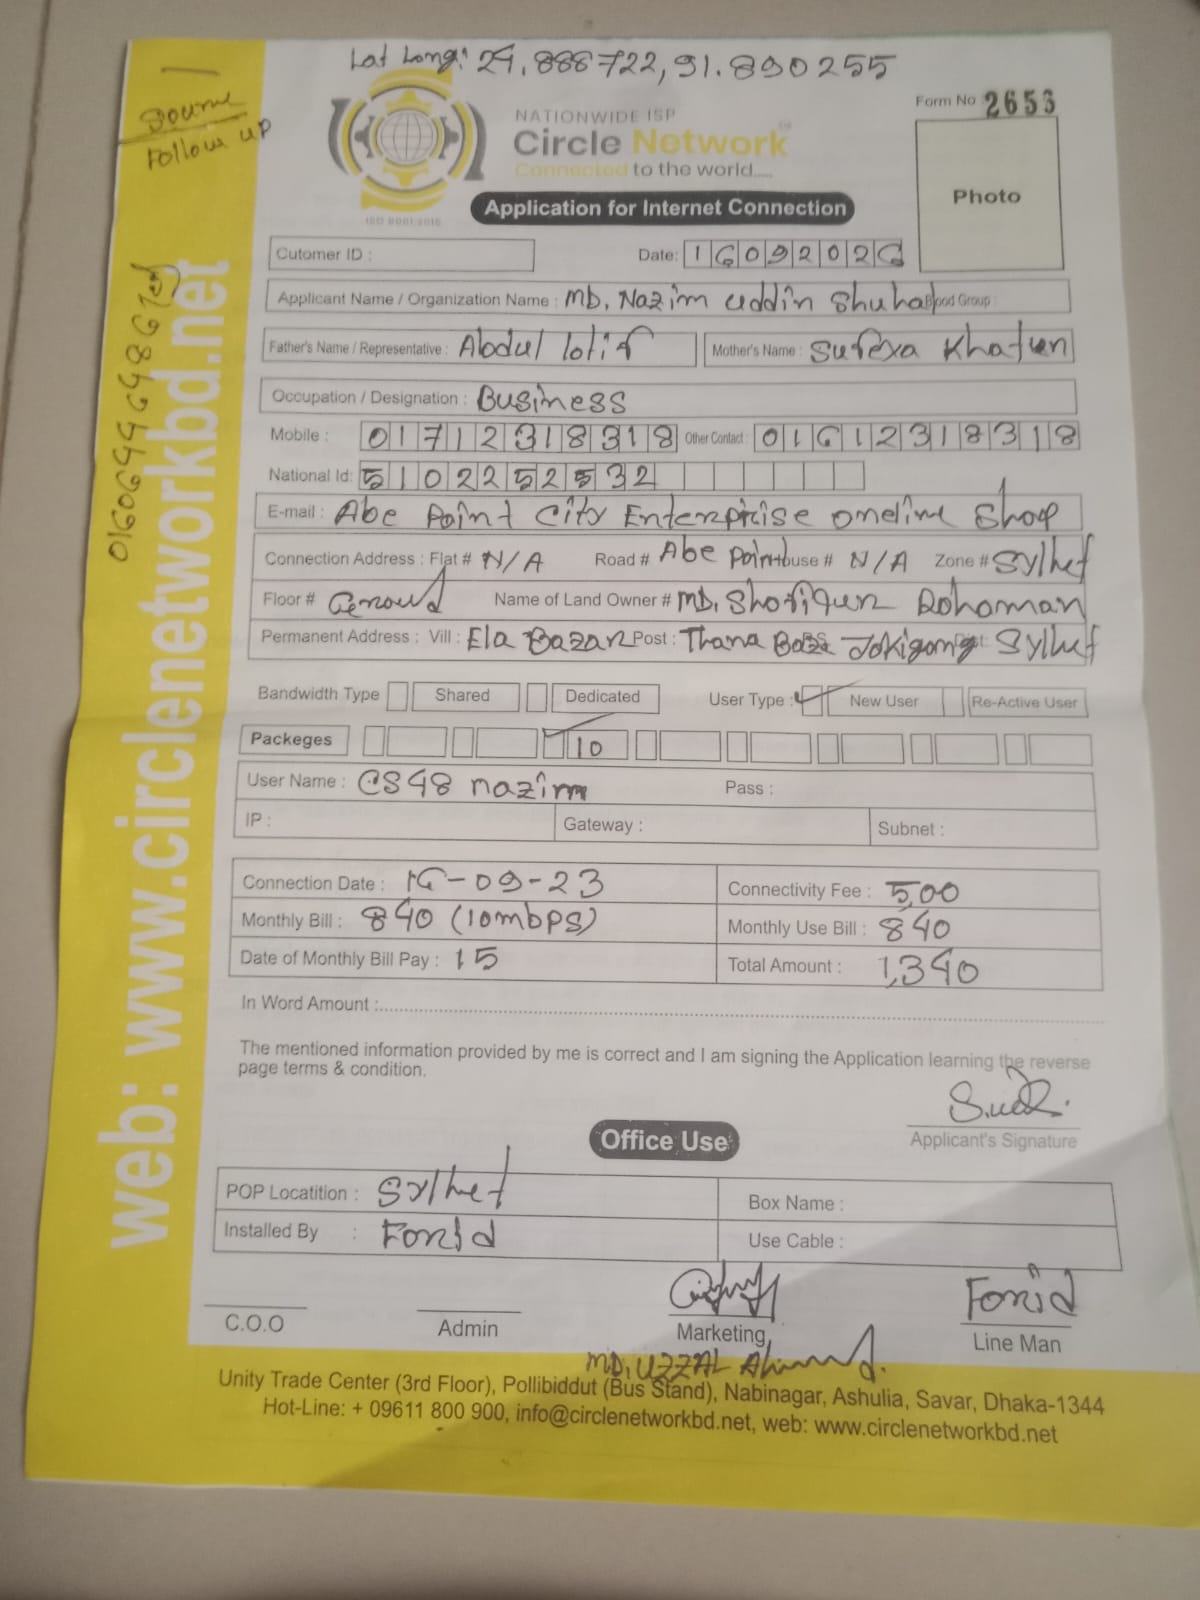 Lat Long: 24.888722,91.890255
Follow up
NATIONWIDE ISP
Circle Network
Connected to the world.....
ISO 9001:2015
Form No 2653
Photo
Application for Internet Connection
Cutomer ID :
Date: 16092026
Applicant Name / Organization Name : Md. Nazim uddin Shuhal Blood Group :
Father's Name / Representative : Abdul lotif Mother's Name : Sufexa Khatun
Occupation / Designation : Business
Mobile : 01712318318 Other Contact : 01612318318
National Id: 5102252532
E-mail : Abe Point City Enterprise oneline Shop
Connection Address : Flat # N/A Road # Abe Point House # N/A Zone # Sylhet
Floor # Genound Name of Land Owner # MD. Shofiqur Rohoman
Permanent Address : Vill : Ela Bazar Post : Thana Baza Jokigong Sylhet
Bandwidth Type Shared Dedicated User Type : New User Re-Active User
Packeges 10
User Name : CS48 nazim Pass :
IP : Gateway : Subnet :
Connection Date : 16-09-23 Connectivity Fee : 500
Monthly Bill : 840 (10mbps) Monthly Use Bill : 840
Date of Monthly Bill Pay : 15 Total Amount : 1,340
In Word Amount :
The mentioned information provided by me is correct and I am signing the Application learning the reverse
page terms & condition.
Applicant's Signature
Office Use
POP Locatition : Sylhet Box Name :
Installed By : Forid Use Cable :
Forid
C.O.O Admin Marketing Line Man
MD. UZZAL Ahmmed.
Unity Trade Center (3rd Floor), Pollibiddut (Bus Stand), Nabinagar, Ashulia, Savar, Dhaka-1344
Hot-Line: + 09611 800 900, info@circlenetworkbd.net, web: www.circlenetworkbd.net
web: www.circlenetworkbd.net